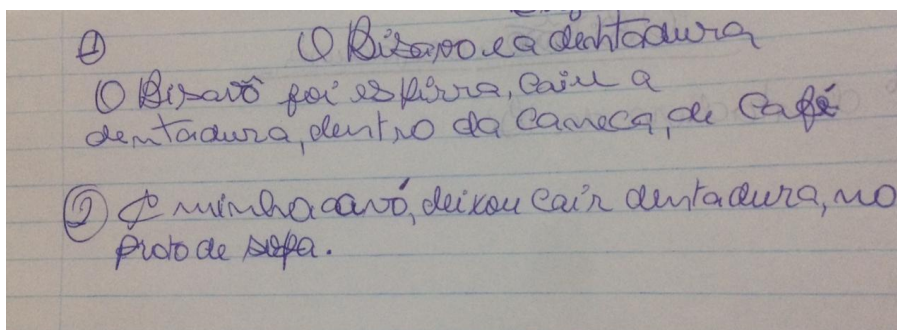 ① O Bizavo e a dentadura
O Bisavô foi espirra, caiu a
dentadura, dentro da caneca, de Café
② A minha avó, deixou cair dentadura, no
prato de sopa.